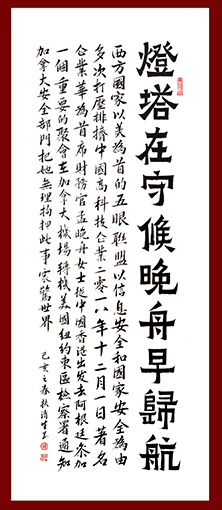 燈塔在守候晚舟早歸航
西方國家以美為首的五眼聯盟以信息安全和國家安全為由
多次打壓排擠中國高科技企業二零一八年十二月一日著名
企業華為首席財務官孟晚舟女士從中國香港出發去阿根廷參加
一個重要的聚會在加拿大機場轉機美國紐約東區檢察署通知
加拿大安全部門把她無理拘押此事震驚世界
己亥之春